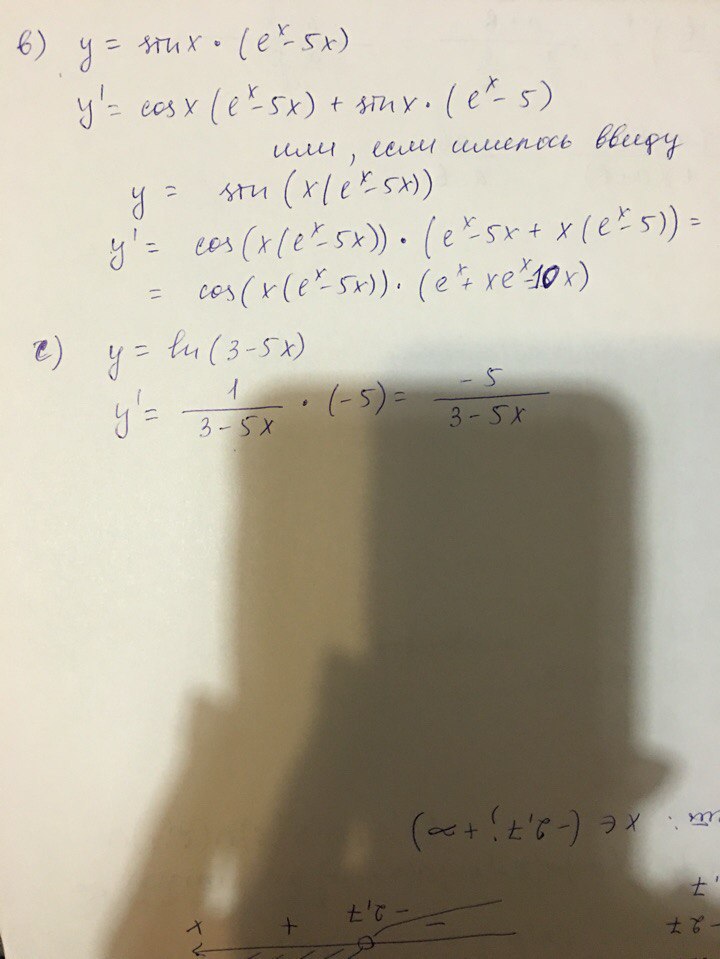 в) y = sin x · (e^x - 5x)
y' = cos x (e^x - 5x) + sin x · (e^x - 5)
или, если имелось ввиду
y = sin (x(e^x - 5x))
y' = cos(x(e^x - 5x)) · (e^x - 5x + x(e^x - 5)) =
= cos(x(e^x - 5x)) · (e^x + xe^x - 10x)
с) y = ln(3 - 5x)
y' = 1/(3 - 5x) · (-5) = -5/(3 - 5x)
x ∈ (-2,7; +∞)
,7
-27
-2,7
- + x